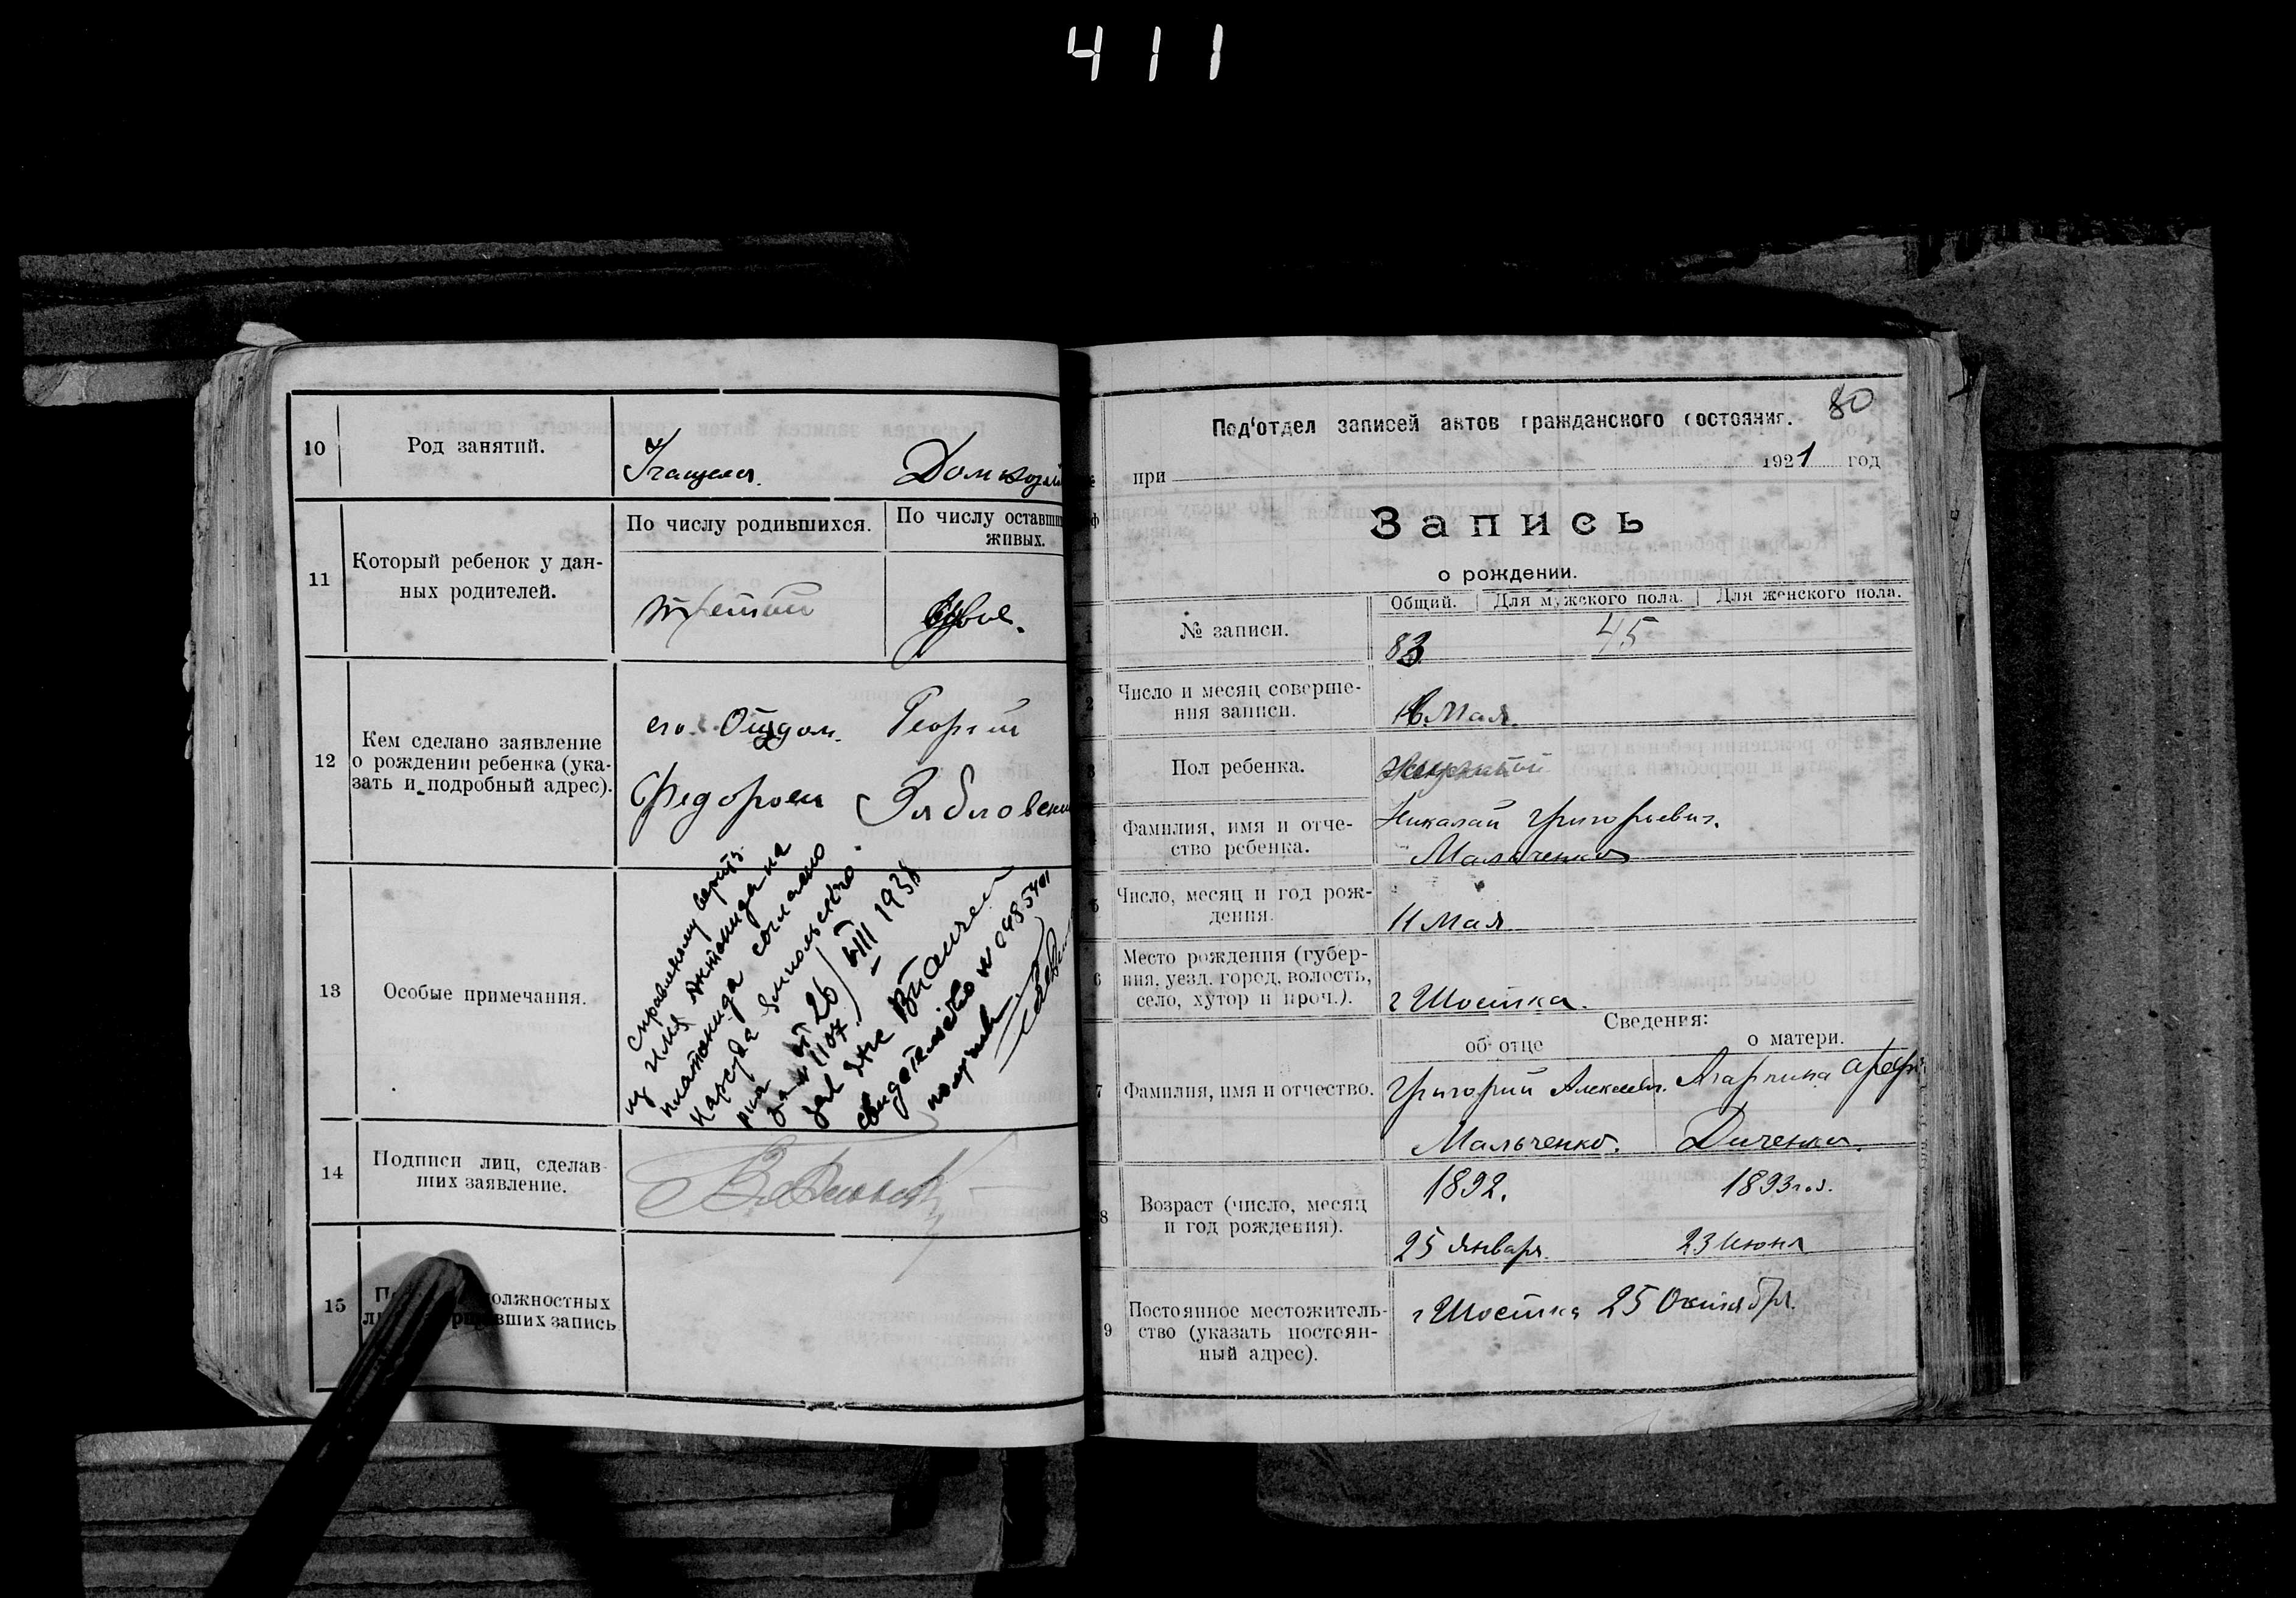 411
10 Род занятий.
Учащися. Домхозяй
11 Который ребенок у дан-
ных родителей.
По числу родившихся. По числу оставши
живых.
третий двое.
12 Кем сделано заявление
о рождении ребенка (ука-
зать и подробный адрес).
его Отцом. Георгий
Федоров
13 Особые примечания.
справленому верить
из имя Антонида на
платонида согласно
Нарсуда Ямпольского
рна от 26/VIII 193
за № 1107.
зав
свидетельство № 0985401
получил
14 Подписи лиц, сделав-
ших заявление.
15 олжностных
вших запись
80
Под'отдел записей актов гражданского состояния.
при 1921 год
Запись
о рождении.
1 № записи.
Общий. Для мужского пола. Для женского пола.
83 45
2 Число и месяц соверше-
ния записи.
16 Мая.
3 Пол ребенка.
4 Фамилия, имя и отче-
ство ребенка.
Николай Григорьевич.
Мальченко
5 Число, месяц и год рож-
дения.
11 Мая
6 Место рождения (губер-
ния, уезд, город, волость,
село, хутор и проч.).
г Шостка.
Сведения:
об отце о матери.
7 Фамилия, имя и отчество.
Григорий Алексеев.
Мальченко. Диченко.
8 Возраст (число, месяц
и год рождения).
1892. 1893 год.
25 Января. 23 Июня
9 Постоянное местожитель-
ство (указать постоян-
ный адрес).
г Шостка 25 Октября.